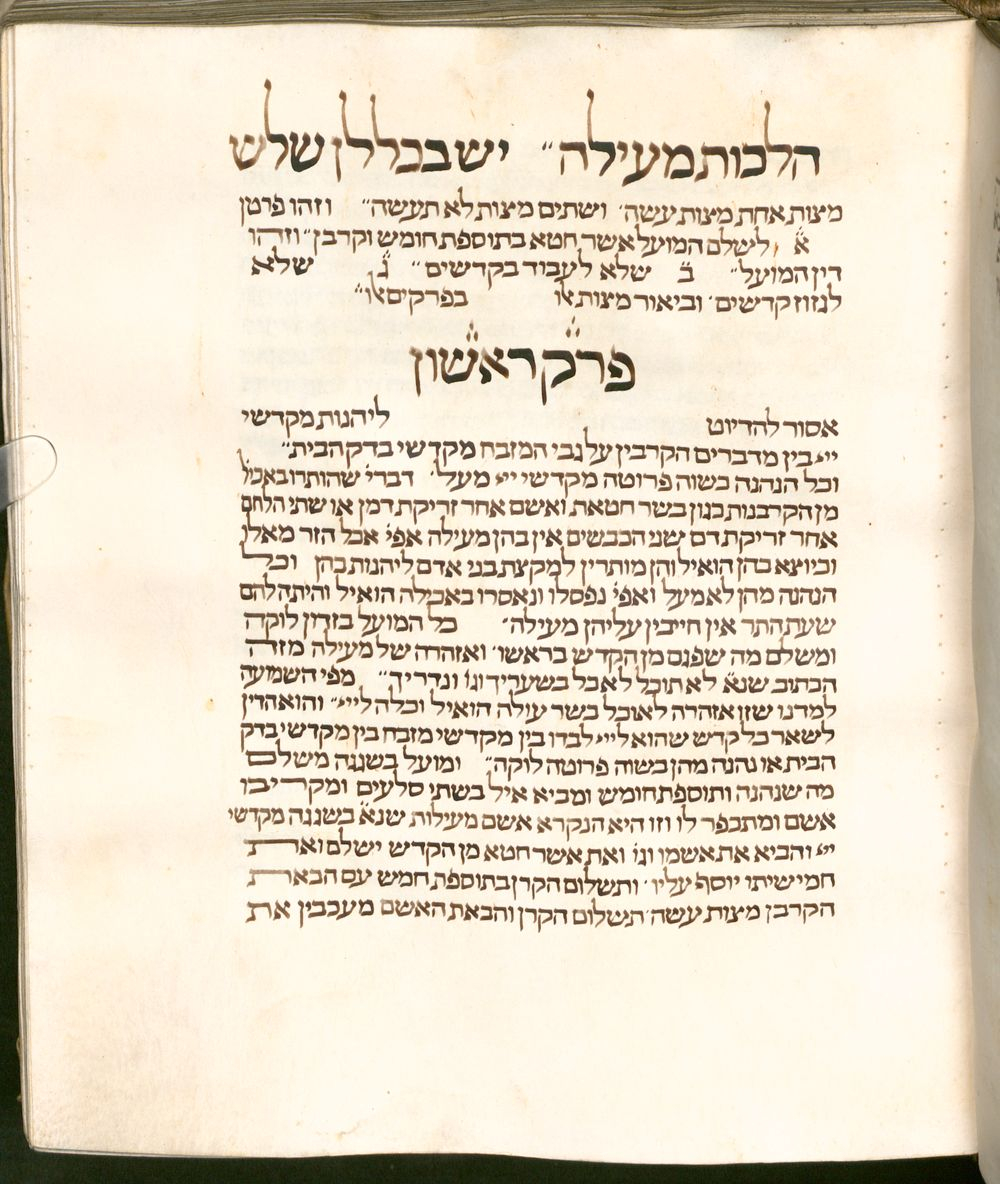 הלכות מעילה״ יש בכללן שלש
מצות אחת מצות עשה׳ ושתים מצות לא תעשה״ וזהו פרטן
א לשלם המועל אשר חטא בתוספת חומש וקרבן״ וזהו
דין המועל״ ב שלא לעבוד בקדשים״ ג שלא
לגזוז קדשים׳ וביאור מצות אלו בפרקים אלו״
פרק ראשון
אסור להדיוט ליהנות מקדשי
ייי בין מדברים הקרבין על גבי המזבח מקדשי בדק הבית״
וכל הנהנה בשוה פרוטה מקדשי ייי מעל׳ דברי׳ שהותרו באכילה
מן הקרבנות כגון בשר חטאת ואשם אחר זריקת דמן או שתי הלחם
אחר זריקת דם שני הכבשים אין בהן מעילה אפי׳ אכל הזר מאלו
וכיוצא בהן הואיל והן מותרין למקצת בני אדם ליהנות בהן וכל
הנהנה מהן לא מעל ואפי׳ נפסלו ונאסרו באכילה הואיל והיתה להם
שעת התר אין חייבין עליהן מעילה׳ כל המועל בזדון לוקה
ומשלם מה שפגם מן הקדש בראשו׳ ואזהרה של מעילה מזה
הכתוב שנא׳ לא תוכל לאכל בשעריך וגו׳ ונדריך״ מפי השמועה
למדנו שזו אזהרה לאוכל בשר עולה הואיל וכלה לייי״ והוא הדין
לשאר כל קדש שהוא לייי לבדו בין מקדשי מזבח בין מקדשי בדק
הבית או נהנה מהן בשוה פרוטה לוקה״ ומועל בשגגה משלם
מה שנהנה ותוספת חומש ומביא איל בשתי סלעים ומקריבו
אשם ומתכפר לו וזו היא הנקרא אשם מעילות שנא׳ בשגגה מקדשי
ייי והביא את אשמו וגו׳ ואת אשר חטא מן הקדש ישלם ואת
חמישיתו יוסף עליו׳ ותשלום הקרן בתוספת חמש עם הבאת
הקרבן מצות עשה׳ תשלום הקרן והבאת האשם מעכבין את